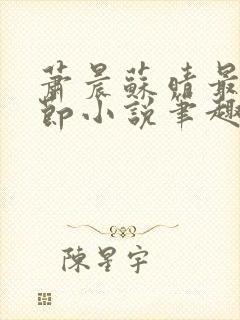 蕭晨蘇晴最
節小說筆趣
陳星宇